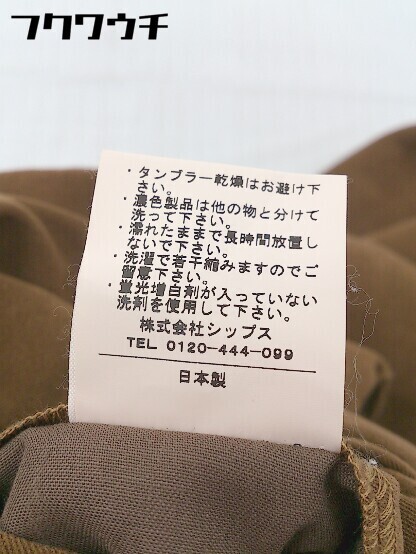 フクワウチ
・タンブラー乾燥はお避け下
さい。
・濃色製品は他の物と分けて
洗って下さい。
・濡れたままで長時間放置し
ないで下さい。
・洗濯で若干縮みますのでご
留意下さい。
・蛍光増白剤が入っていない
洗剤を使用して下さい。
株式会社シップス
TEL 0120-444-099
日本製